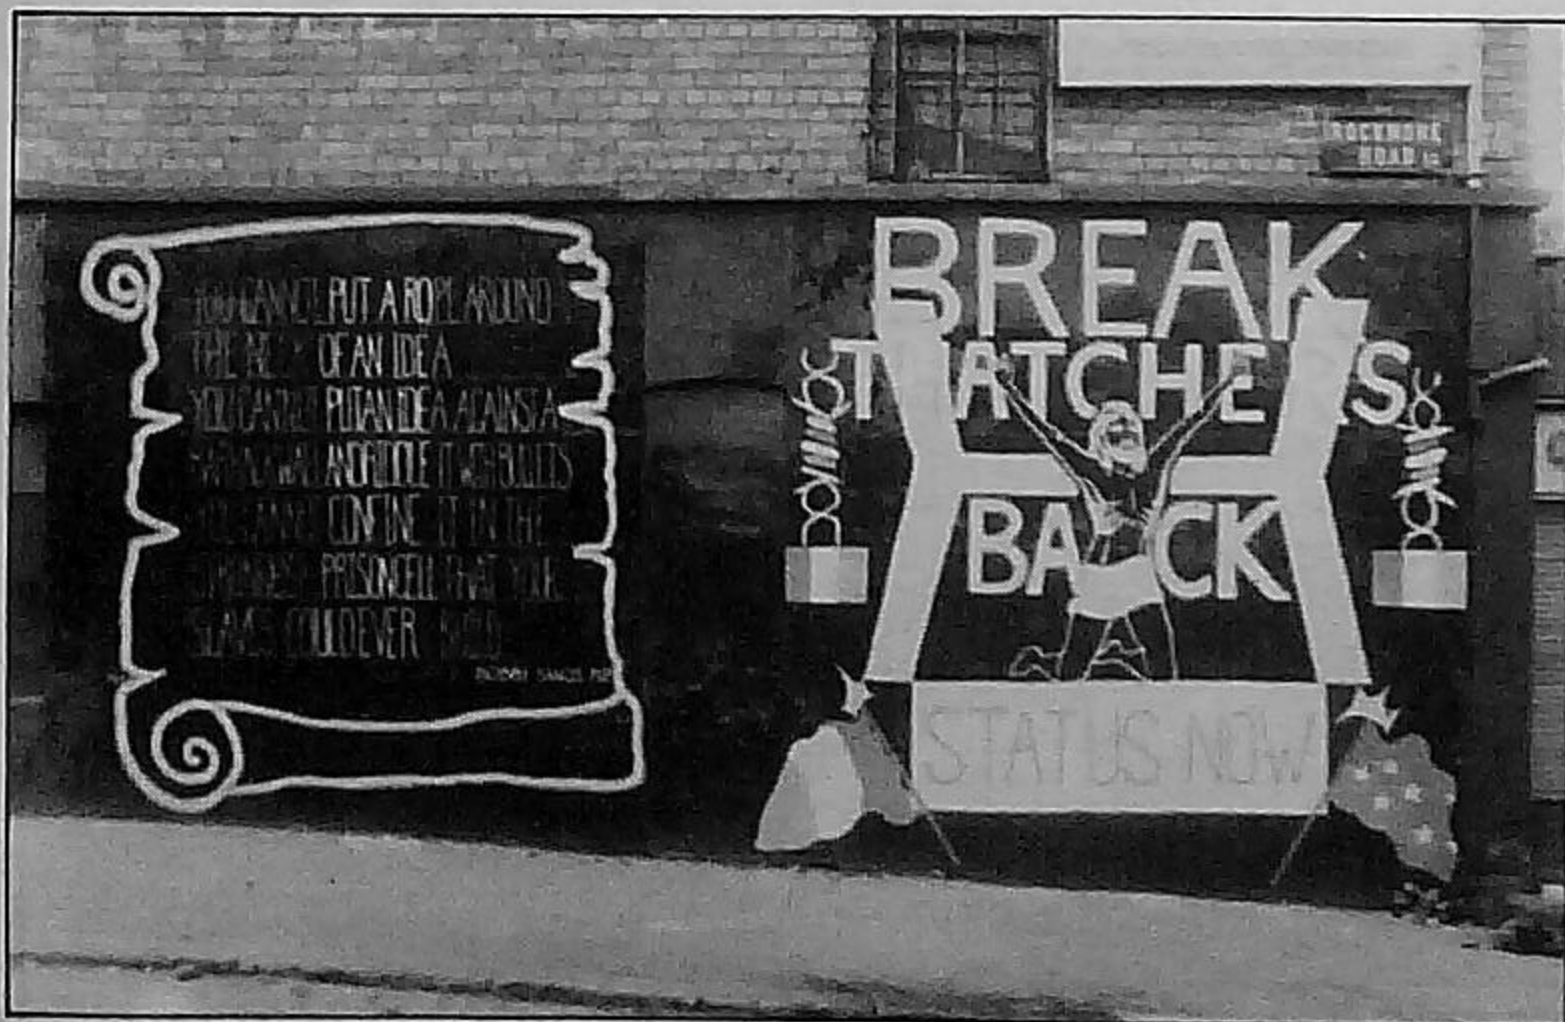 ROCKMORE
ROAD
YOU CANNOT PUT A ROPE AROUND
THE NECK OF AN IDEA
YOU CANNOT PUT AN IDEA AGAINST A
WALL AND RIDDLE IT WITH BULLETS
YOU CANNOT CONFINE IT IN THE
PRISON CELL THAT YOUR
SLAVES COULD EVER BUILD
BOBBY SANDS MP
BREAK
THATCHERS
BACK
STATUS NOW